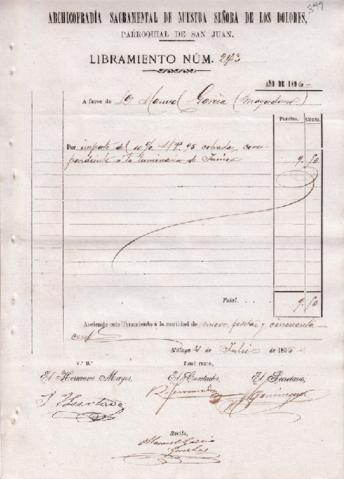 399
ARCHICOFRADÍA SACRAMENTAL DE NUESTRA SEÑORA DE LOS DOLORES,
PARROQUIAL DE SAN JUAN.
LIBRAMIENTO NÚM. 293
AÑO DE 1895
A favor de D. Manuel García
Pesetas. Cénts.
Por importe del 10 % s/ 95 cobradas, corres-
pondiente a la luminaria de Junio 9. 50
Total. . . . 9. 50
Asciende este libramiento á la cantidad de nueve pesetas y cincuenta
cent.
Málaga de Julio de 1895
V.º B.º Tomé razon,
El Hermano Mayor, El Contador, El Secretario
Recibí,
Manuel García